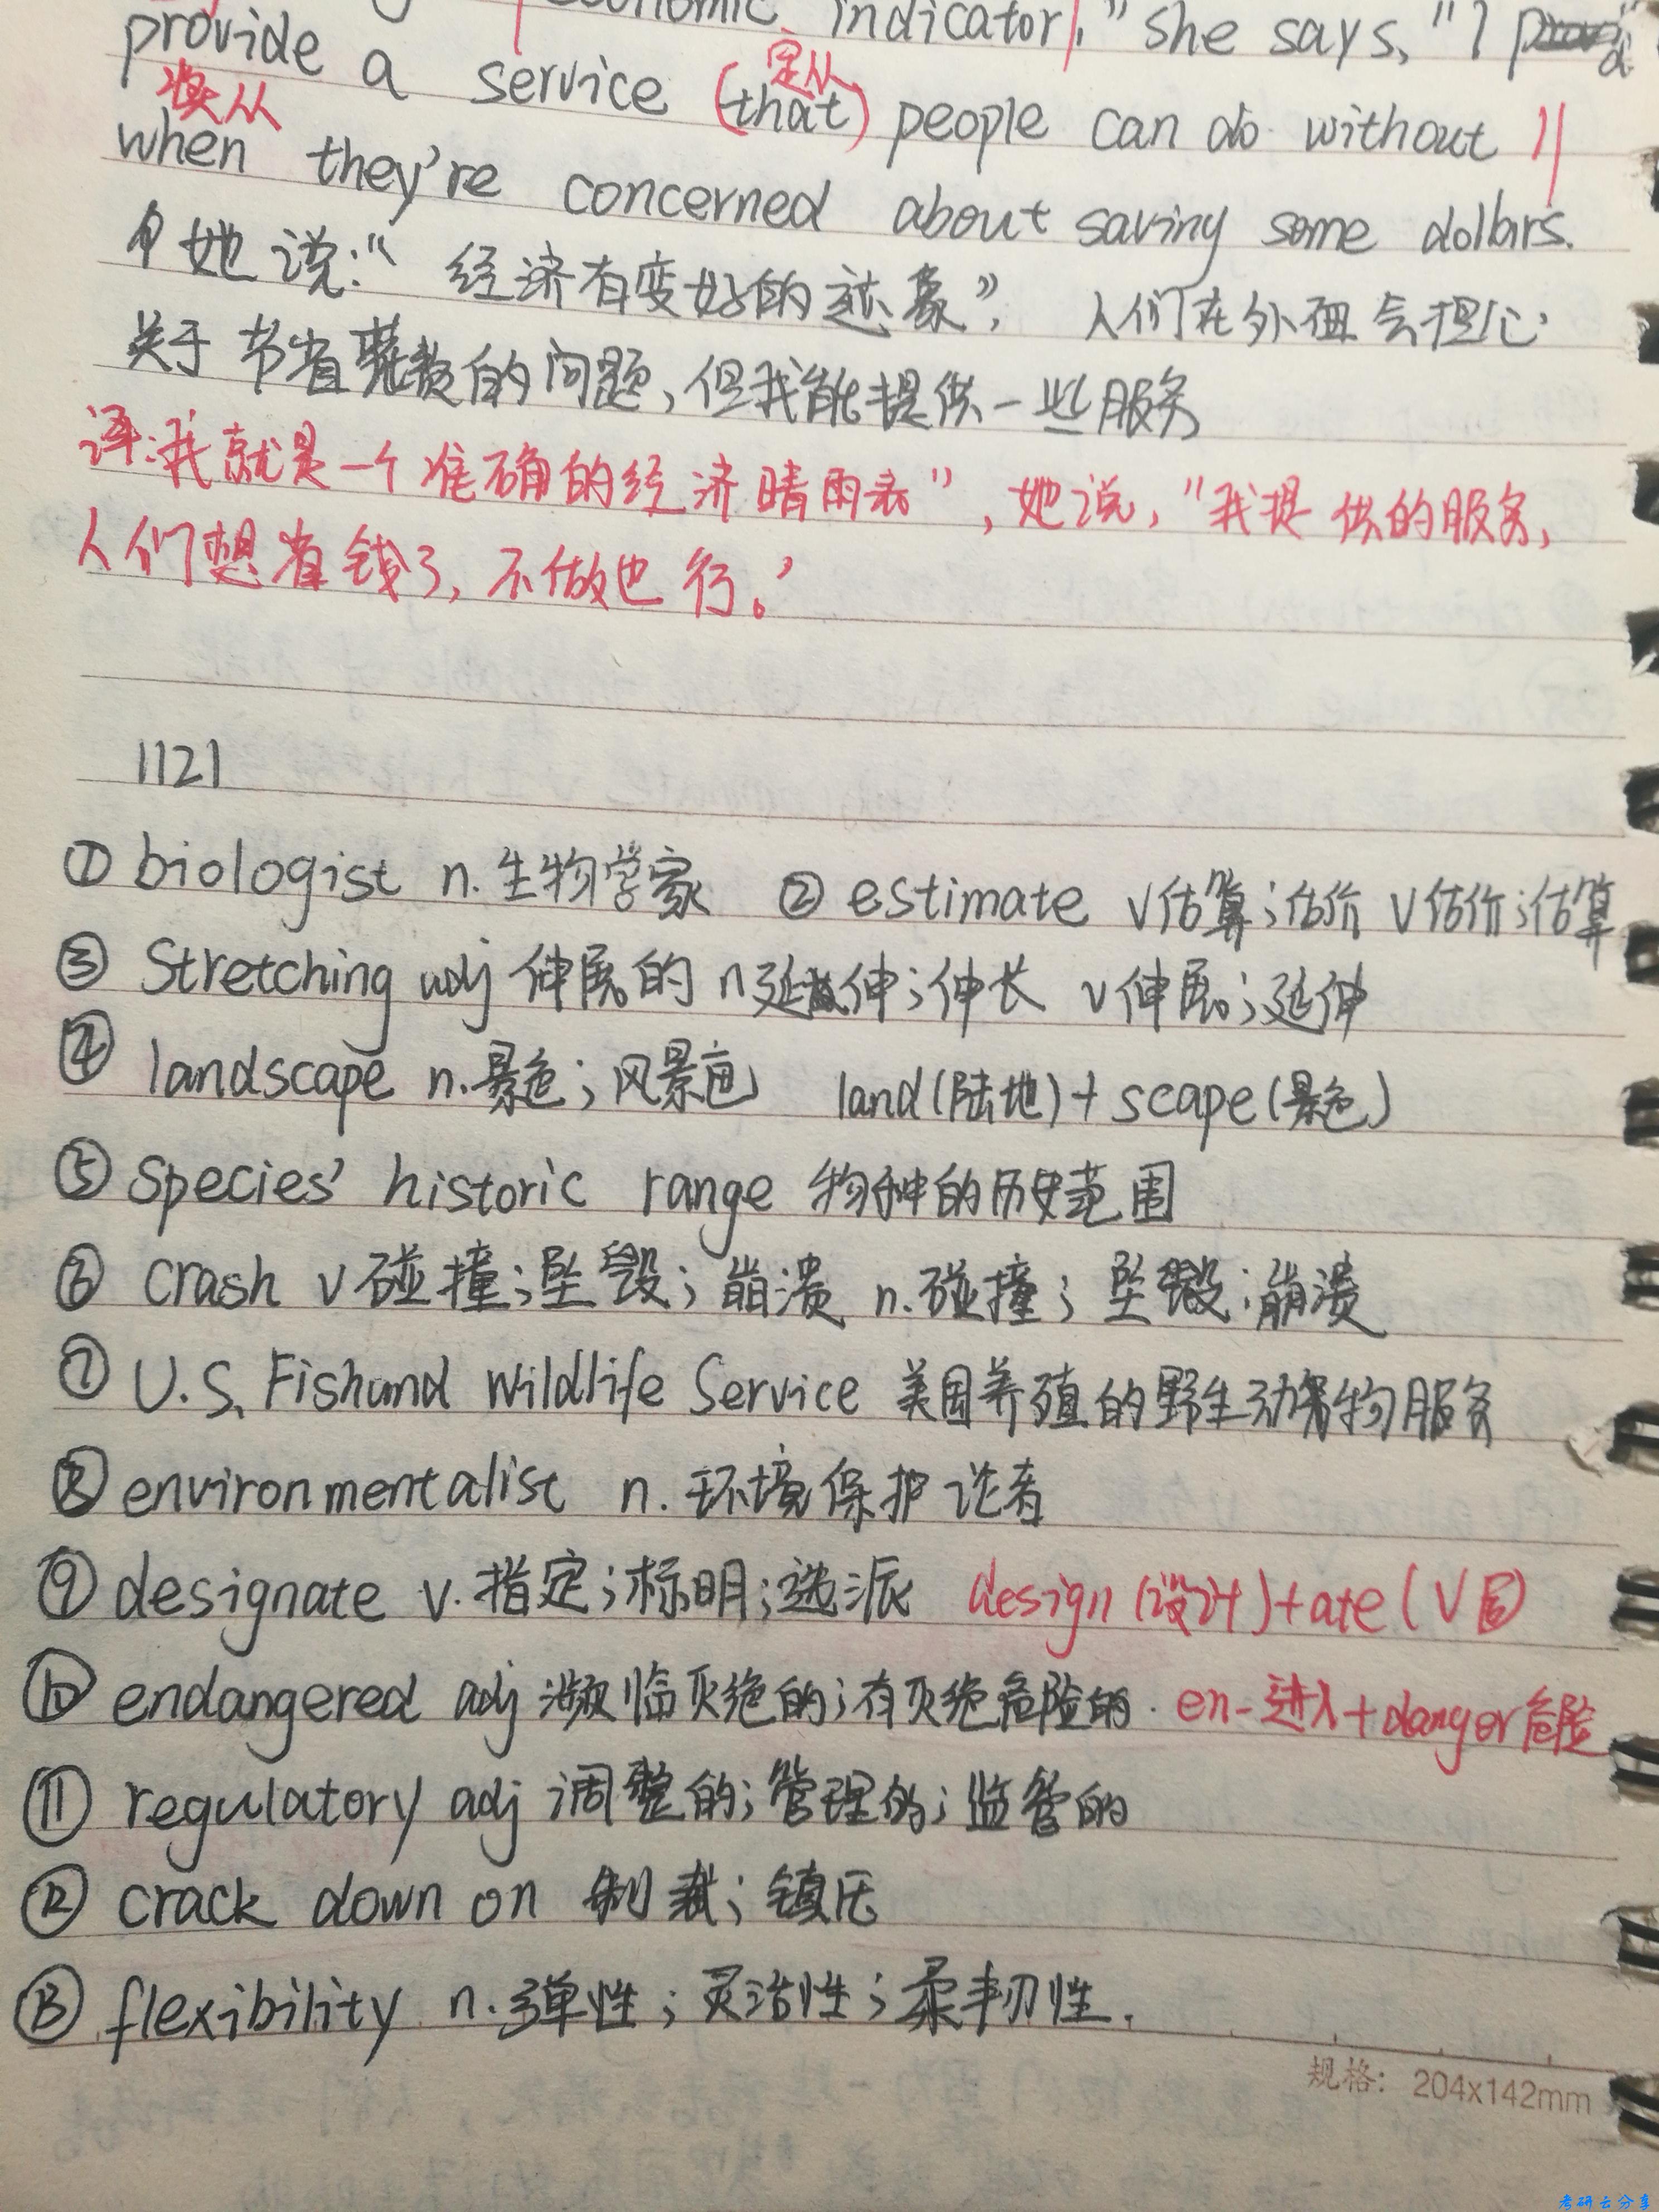 economic indicator," she says, "I
provide a service (that) people can do without
定从
状从
when they're concerned about saving some dollars.
她说:“经济有变好的迹象”, 人们在外面会担心
关于节省花费的问题,但我能提供一些服务
译:我就是一个准确的经济晴雨表”,她说,“我提供的服务,
人们想省钱了,不做也行。’
1121
① biologist n.生物学家 ② estimate v估算;估价 v估价;估算
③ Stretching adj 伸展的 n延伸;伸长 v伸展;延伸
④ landscape n.景色;风景画 land(陆地)+scape(景色)
⑤ species' historic range 物种的历史范围
⑥ crash v碰撞;坠毁;崩溃 n.碰撞;坠毁;崩溃
⑦ U.S. Fishand Wildlife Service 美国养殖的野生动物服务
⑧ environmentalist n.环境保护论者
⑨ designate v.指定;标明;选派 design(设计)+ate(V回)
⑩ endangered adj 濒临灭绝的;有灭绝危险的. en-进入+danger危险
⑪ regulatory adj 调整的;管理的;监管的
⑫ crack down on 制裁;镇压
⑬ flexibility n.弹性;灵活性;柔韧性.
规格: 204x142mm
考研云分享